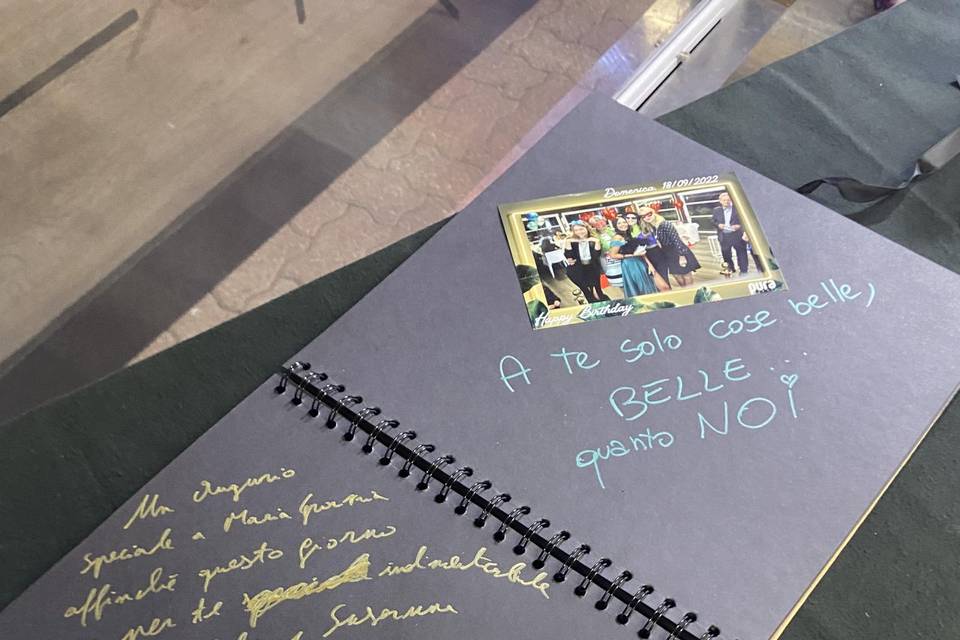 Domenica 18/09/2022
Happy Birthday
pura
A te solo cose belle,
BELLE..
quanto NOI
Un augurio
speciale a Maria Grazia
affinché questo giorno
per te indimenticabile
Susanna